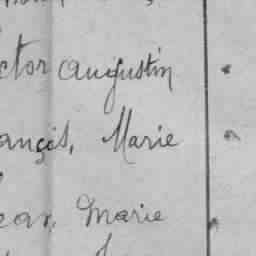 ctor augustin
ançois, Marie
ean, Marie